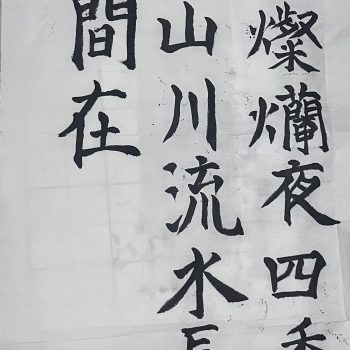 燦爛夜四季
山川流水長
間在